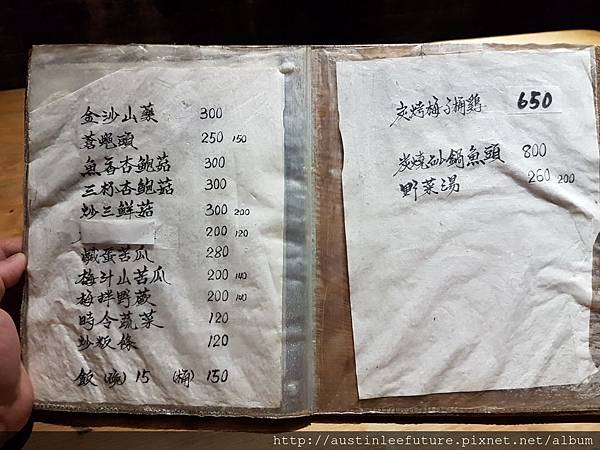 金沙山藥 300
蒼蠅頭 250 150
魚香杏鮑菇 300
三杯杏鮑菇 300
炒三鮮菇 300 200
200 120
鹹蛋苦瓜 280
梅汁山苦瓜 200 140
梅拌野蕨 200 140
時令蔬菜 120
炒粄條 120
飯(碗)15 (桶)150
炭烤梅子桶鷄 650
炭燒砂鍋魚頭 800
野菜湯 260 200
http://austinleefuture.pixnet.net/album